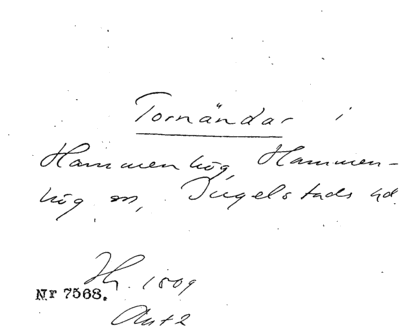 Tornändar i
Hammenhög, Hammen-
hög sn, Ingelstads hd.
1509
Nr 7568.